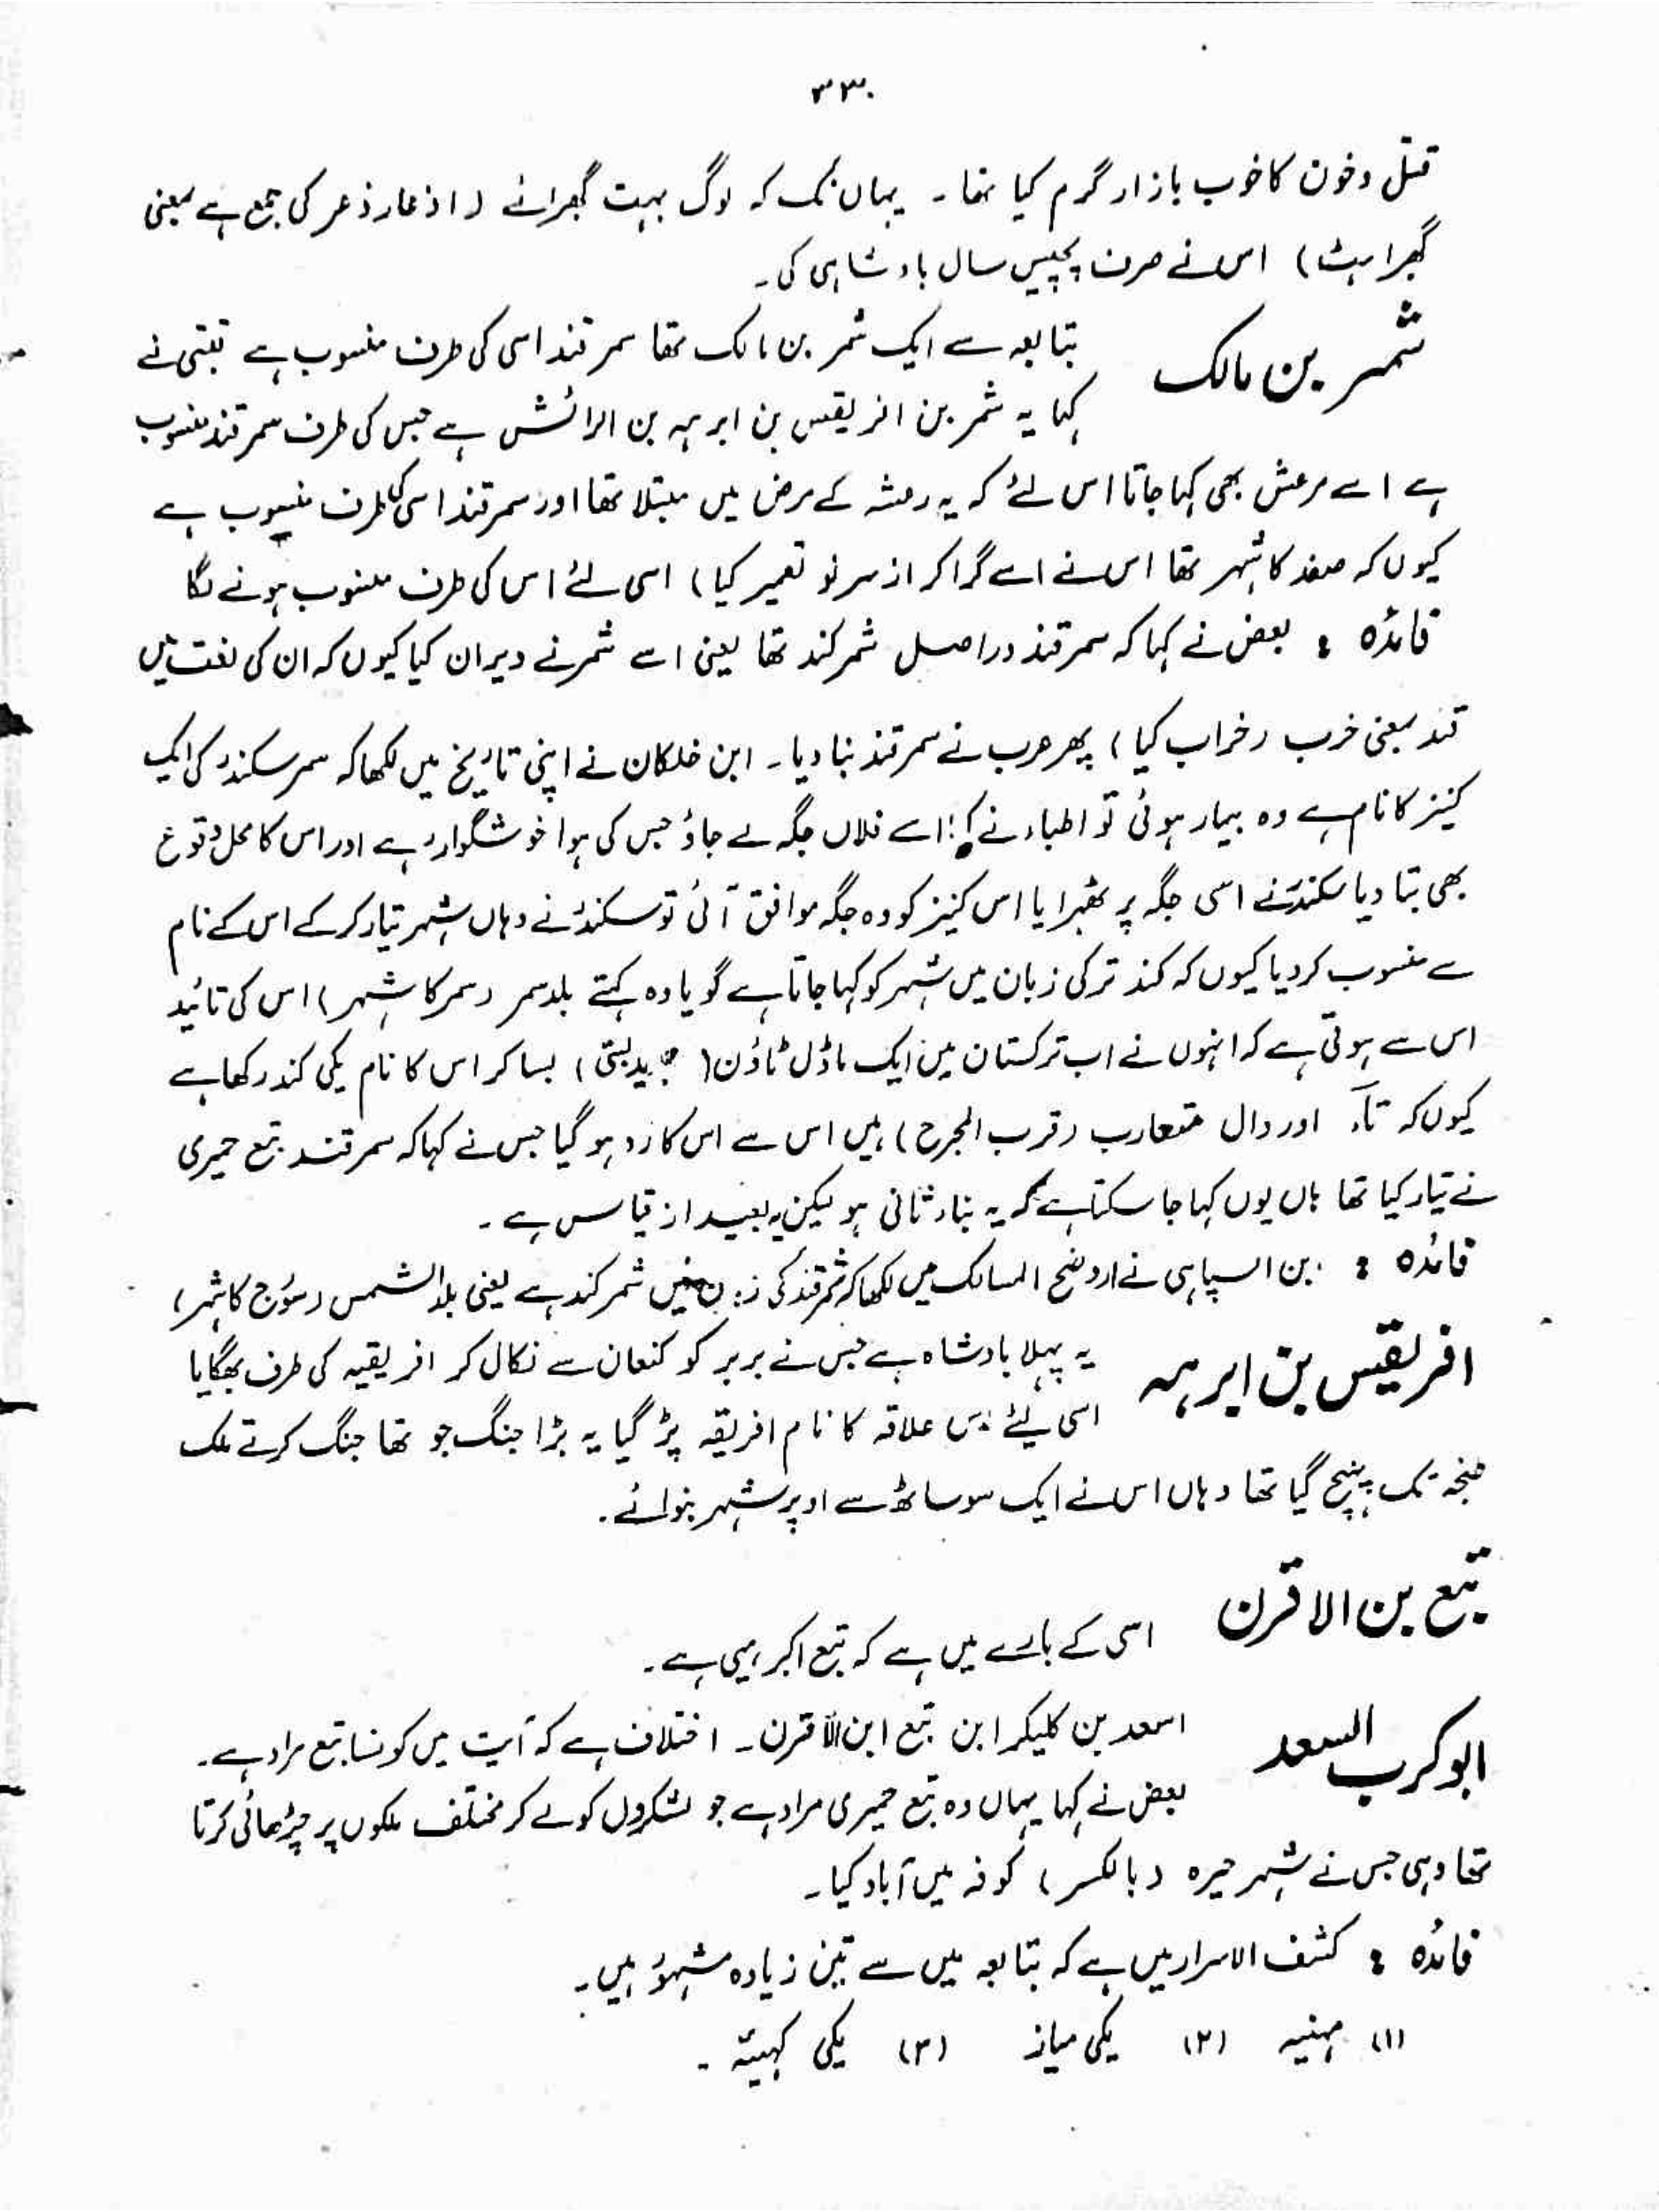 ۳۳۰
قتل وخون کا خوب بازار گرم کیا تھا۔ یہاں تک کہ لوگ بہت گھبرائے (اذعار ذعر کی جمع ہے بمعنی
گھبراہٹ) اس نے صرف پچیس سال بادشاہی کی۔
شمر بن مالک
تبابعہ سے ایک شمر بن مالک تھا سمرقند اسی کی طرف منسوب ہے قتبی نے
کہا یہ شمر بن افریقیس بن ابرہہ بن الرائش ہے جس کی طرف سمرقند منسوب
ہے اسے مرعش بھی کہا جاتا اس لئے کہ یہ رعشہ کے مرض میں مبتلا تھا اور سمرقند اسی کی طرف منسوب ہے
کیوں کہ صغد کا شہر تھا اس نے اسے گرا کر از سر نو تعمیر کیا) اسی لئے اس کی طرف منسوب ہونے لگا
فائدہ : بعض نے کہا کہ سمرقند دراصل شمر کند تھا یعنی اسے شمر نے ویران کیا کیوں کہ ان کی لغت میں
قند بمعنی خرب (خراب کیا) پھر عرب نے سمرقند بنا دیا۔ ابن خلکان نے اپنی تاریخ میں لکھا کہ سمر سکندر کی ایک
کنیز کا نام ہے وہ بیمار ہوئی تو اطباء نے کہا اسے فلاں جگہ لے جاؤ جس کی ہوا خوشگوار ہے اور اس کا محل وقوع
بھی بتا دیا سکندر نے اسی جگہ پر ٹھہرایا اس کنیز کو وہ جگہ موافق آئی تو سکندر نے وہاں شہر تیار کر کے اس کے نام
سے منسوب کر دیا کیوں کہ کند ترکی زبان میں شہر کو کہا جاتا ہے گویا وہ کہتے بلد سمر (سمر کا شہر) اس کی تائید
اس سے ہوتی ہے کہ انہوں نے اب ترکستان میں ایک ماڈل ٹاؤن (جدید بستی) بسا کر اس کا نام یکی کند رکھا ہے
کیوں کہ تآء اور دال متعارب (قرب المجرح) ہیں اس سے اس کا رد ہو گیا جس نے کہا کہ سمرقند تبع حمیری
نے تیار کیا تھا ہاں یوں کہا جا سکتا ہے کہ یہ بناء ثانی ہو لیکن یہ بعید از قیاس ہے ۔
فائدہ : ابن السپاہی نے اردضح المسالک میں لکھا کہ شمرقند کی زبان میں شمر کند ہے یعنی بلد الشمس (سورج کا شہر)
افریقیس بن ابرہہ
یہ پہلا بادشاہ ہے جس نے بربر کو کنعان سے نکال کر افریقیہ کی طرف بھگایا
اسی لئے اس علاقہ کا نام افریقہ پڑ گیا یہ بڑا جنگ جو تھا جنگ کرتے ملک
طنجہ تک پہنچ گیا تھا وہاں اس نے ایک سو ساٹھ سے اوپر شہر بنوائے۔
تبع بن الاقرن
اسی کے بارے میں ہے کہ تبع اکبر یہی ہے۔
ابو کرب اسعد
اسعد بن کلیکر ابن تبع ابن الاقرن۔ اختلاف ہے کہ آیت میں کونسا تبع مراد ہے۔
بعض نے کہا یہاں وہ تبع حمیری مراد ہے جو لشکروں کو لے کر مختلف ملکوں پر چڑھائی کرتا
تھا وہی جس نے شہر حیرہ (بالکسر) کوفہ میں آباد کیا۔
فائدہ : کشف الاسرار میں ہے کہ تبابعہ میں سے تین زیادہ مشہور ہیں۔
(۱) مہنیہ (۲) یکی میاز (۳) یکی کہینہ ۔